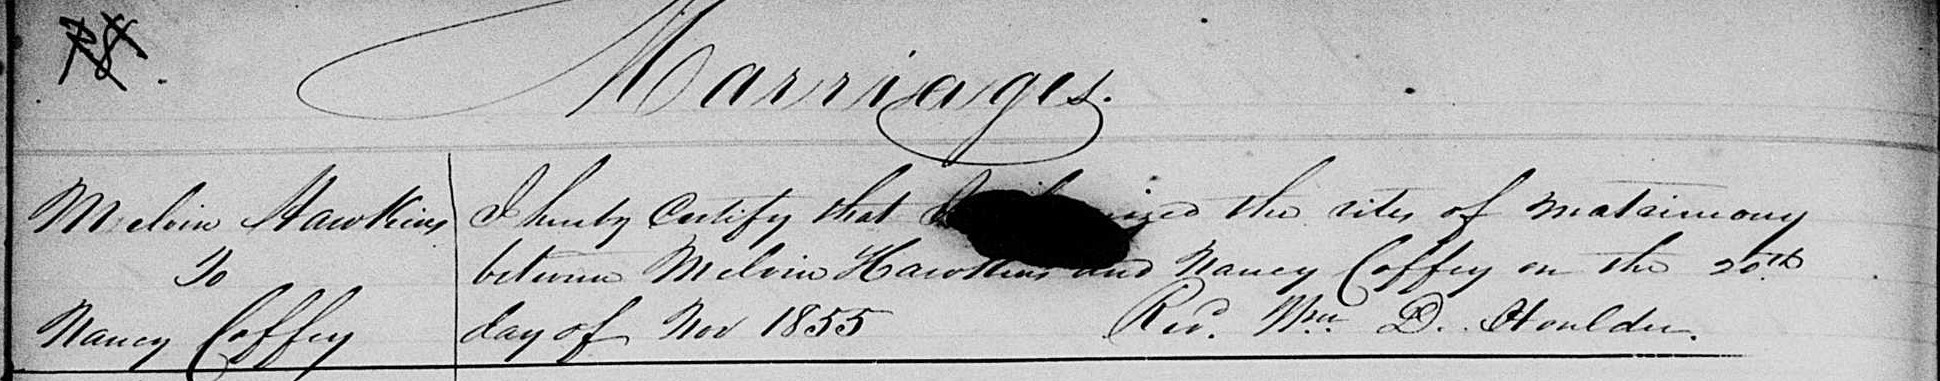 Marriages.
Melvin Hawkins
To
Nancy Coffey
I hereby Certify that I the rites of Matrimony
between Melvin Hawkins and Nancy Coffey on the 20th
day of Nov 1855
Revd. Wm D. Houlder.